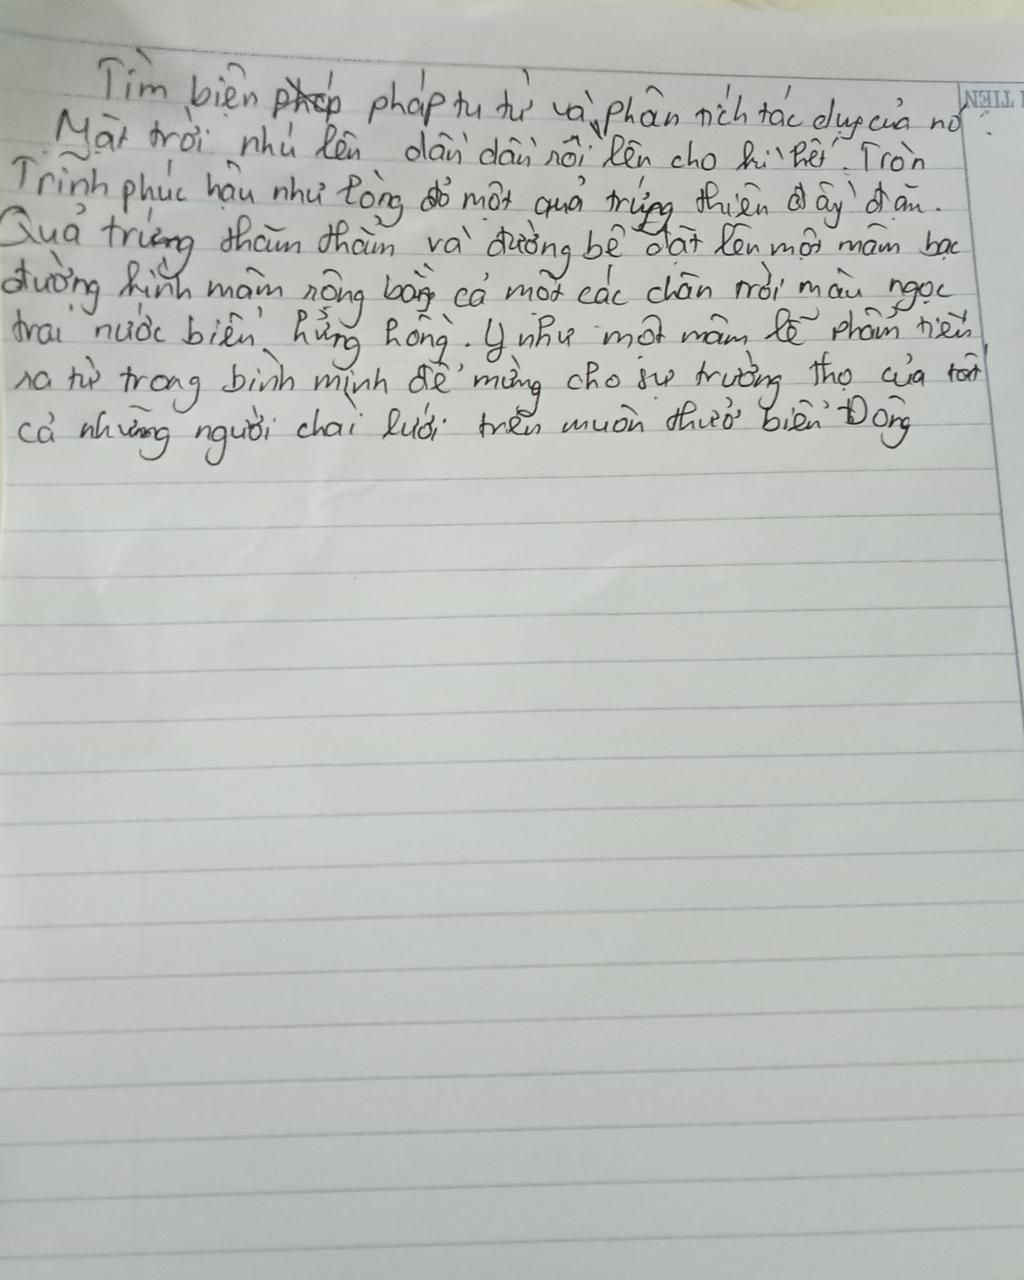 Tìm biện pháp tu từ và phân tích tác dụng của nó
TIÊN
Mặt trời nhú lên dần dần rồi lên cho kì hết. Tròn
Trĩnh phúc hậu như lòng đỏ một quả trứng thiên đầy đặn.
Quả trứng thăm thẳm và đường bệ đặt lên một mâm bạc
đường kính mâm rộng bằng cả một các chân trời màu ngọc
trai nước biển hửng hồng. Y như một mâm lễ phẩm tiến
ra từ trong bình minh để mừng cho sự trường thọ của tất
cả những người chài lưới trên muôn thuở biển Đông